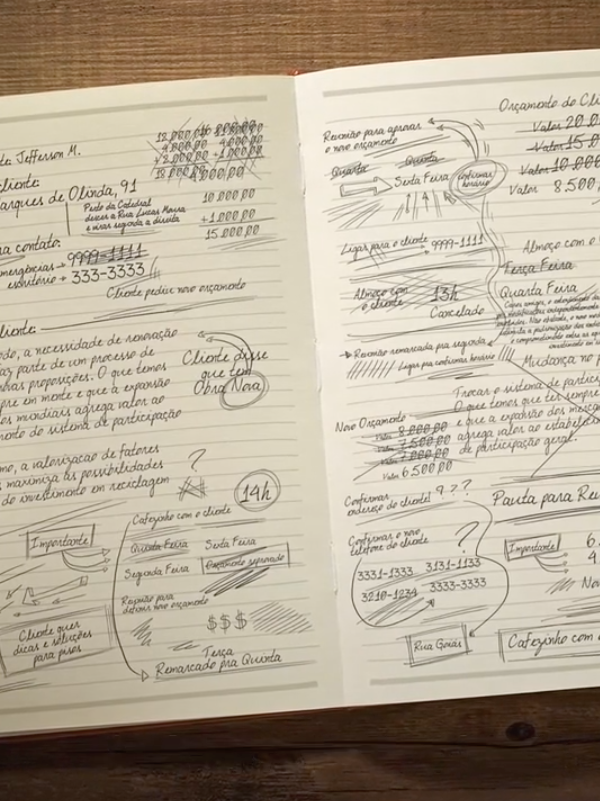 te: Jefferson M.
18.000,00
4.000,00
18.000,00
4.000,00
10.000,00
+ 1.000,00
15.000,00
cliente:
arques de Olinda, 91
Perto da Catedral
descer a Rua Lucas Moura
e virar segunda a direita
ra contato:
9999-1111
mergências →
escritório → 333-3333
Cliente pediu novo orçamento
liente:
odo, a necessidade de renovação
faz parte de um processo de
novas proposições. O que temos
pre em mente e que a expansão
dos mundiais agrega valor ao
mento do sistema de participação
Cliente disse
que tem
Obra Nova
mo, a valorização de fatores
maximiza as possibilidades
do investimento em reciclagem
?
14h
Importante
Cliente quer
dicas e soluções
para pisos
Cafezinho com o cliente
Quinta Feira
Sexta Feira
Segunda Feira
Orçamento reprovado
Reunião para
definir novo orçamento
$$$
Terça
Remarcado pra Quinta
Reunião para aprovar
o novo orçamento
Quarta
Quinta
Sexta Feira
confirmar
horário
Ligar para o cliente
9999-1111
Almoço com
o cliente
13h
Cancelado
Reunião remarcada pra segunda
Ligar pra confirmar horário
Novo Orçamento
Valor 8.000,00
Valor 7.500,00
Valor 7.000,00
Valor 6.500,00
Confirmar
endereço do cliente!
? ? ?
Confirmar o novo
telefone do cliente
?
3331-1333
3131-1133
3210-1234
3333-3333
Rua Goiás
Orçamento do Cli
Valor 20.0
Valor 15.0
Valor 10.000
Valor 8.500,
Almoço com o
Terça Feira
Quarta Feira
Mudança no p
Trocar o sistema de partici
O que temos que ter sempre
e que a expansão dos merca
agrega valor ao estabele
de participação geral.
Pauta para Reu
Importante
6.
4.
No
Cafezinho com